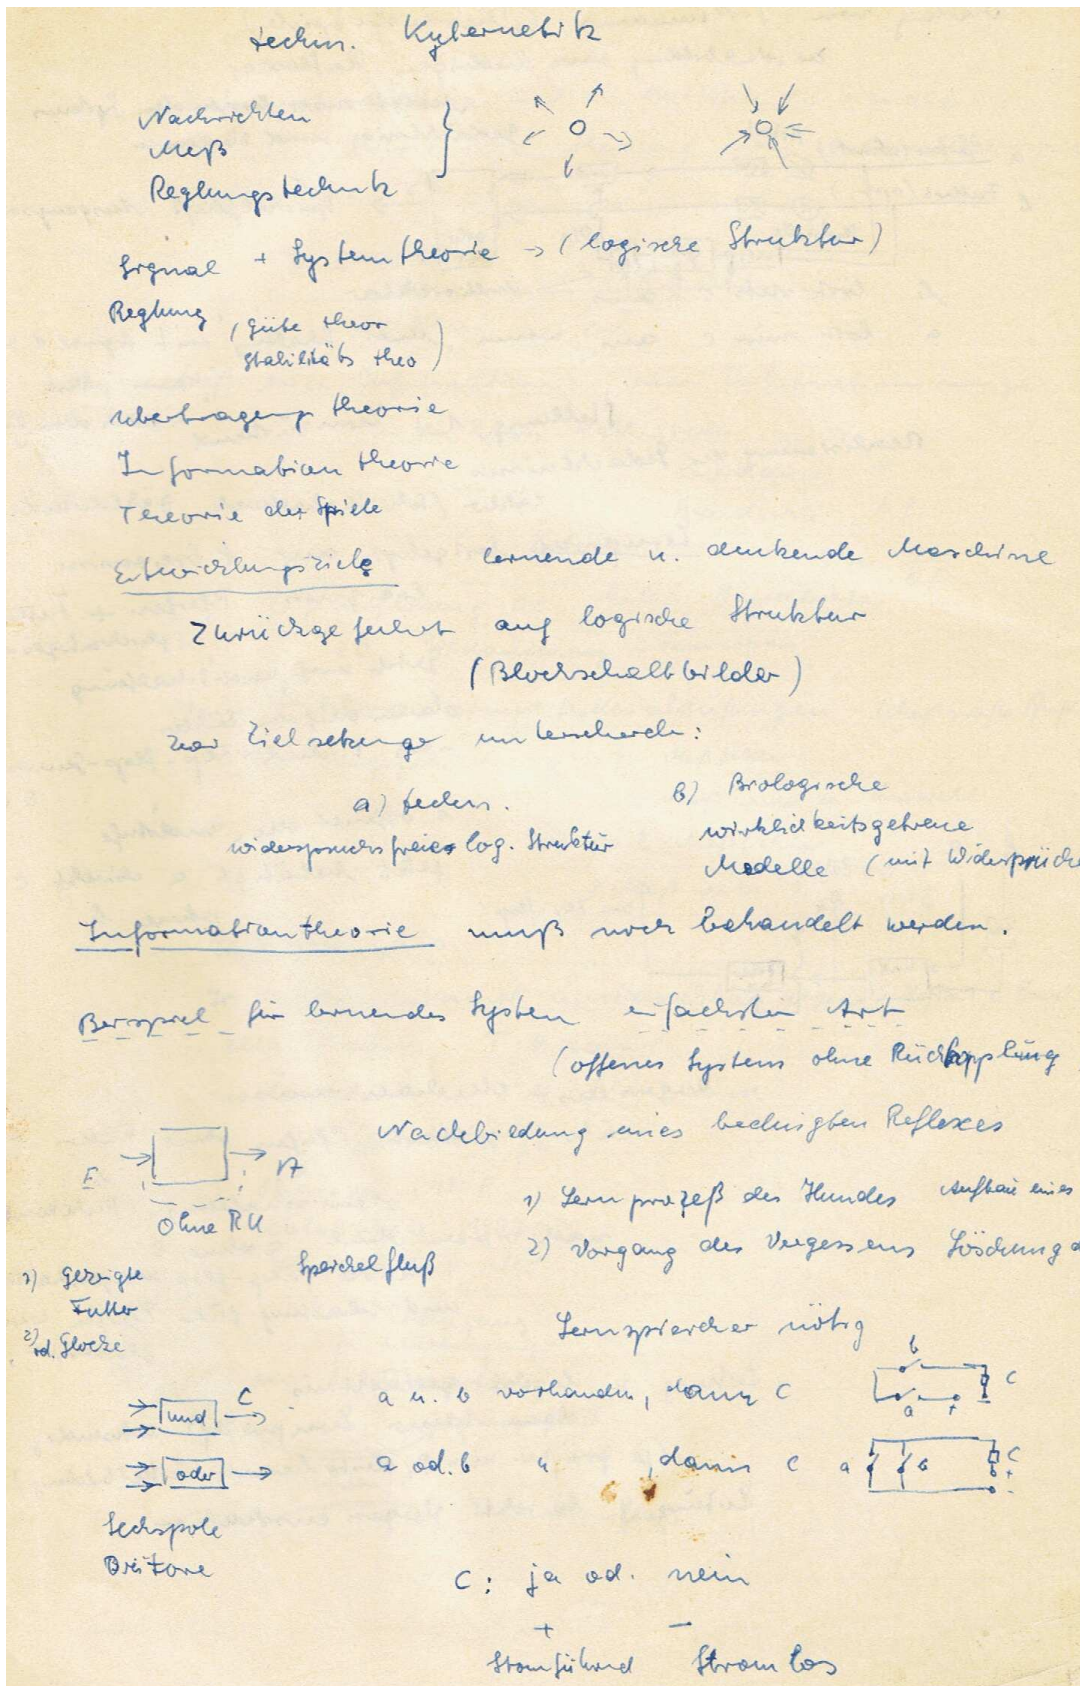 techn. Kybernetik
Nachrichten
Meß
Reglungstechnik
Signal + Systemtheorie → (logische Struktur)
Reglung (Güte theor
Stabilitäts theo)
Übertragung theorie
Information theorie
Theorie der Spiele
Entwicklungsziele lernende u. denkende Maschine
Zurückgeführt auf logische Struktur
(Blockschaltbilder)
Zwei Zielsetzunge unterscheide:
a) techn.
widerspruchsfreie log. Struktur
b) Biologische
wirklichkeitsgetreue
Modelle (mit Widersprüche
Informationtheorie muß noch behandelt werden.
Beispiel für lernendes System einfachster Art
(offenes System ohne Rückkopplung
E A
Ohne RK
Nachbildung eines bedingten Reflexes
1) Lernprozeß des Hundes Aufbau eines
2) Vorgang des Vergessens Löschung d
1) Gezeigte Speichelfluß
Futter
2) od. Glocke
Lernspeicher nötig
und C a u. b vorhanden, dann C b a + C
oder a od. b " , dann C a b C + -
Sechspole
Dreitore
C: ja od. nein
+ −
Stromführend Stromlos